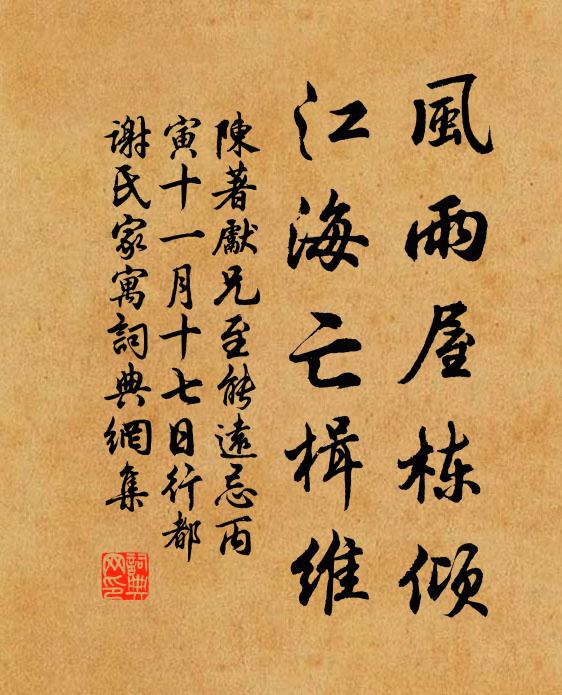 風雨屋栋倾
江海亡楫維
陳著獻兄至能遠忌丙
寅十一月十七日行都
謝氏家寓詞典網集
詞典
网印